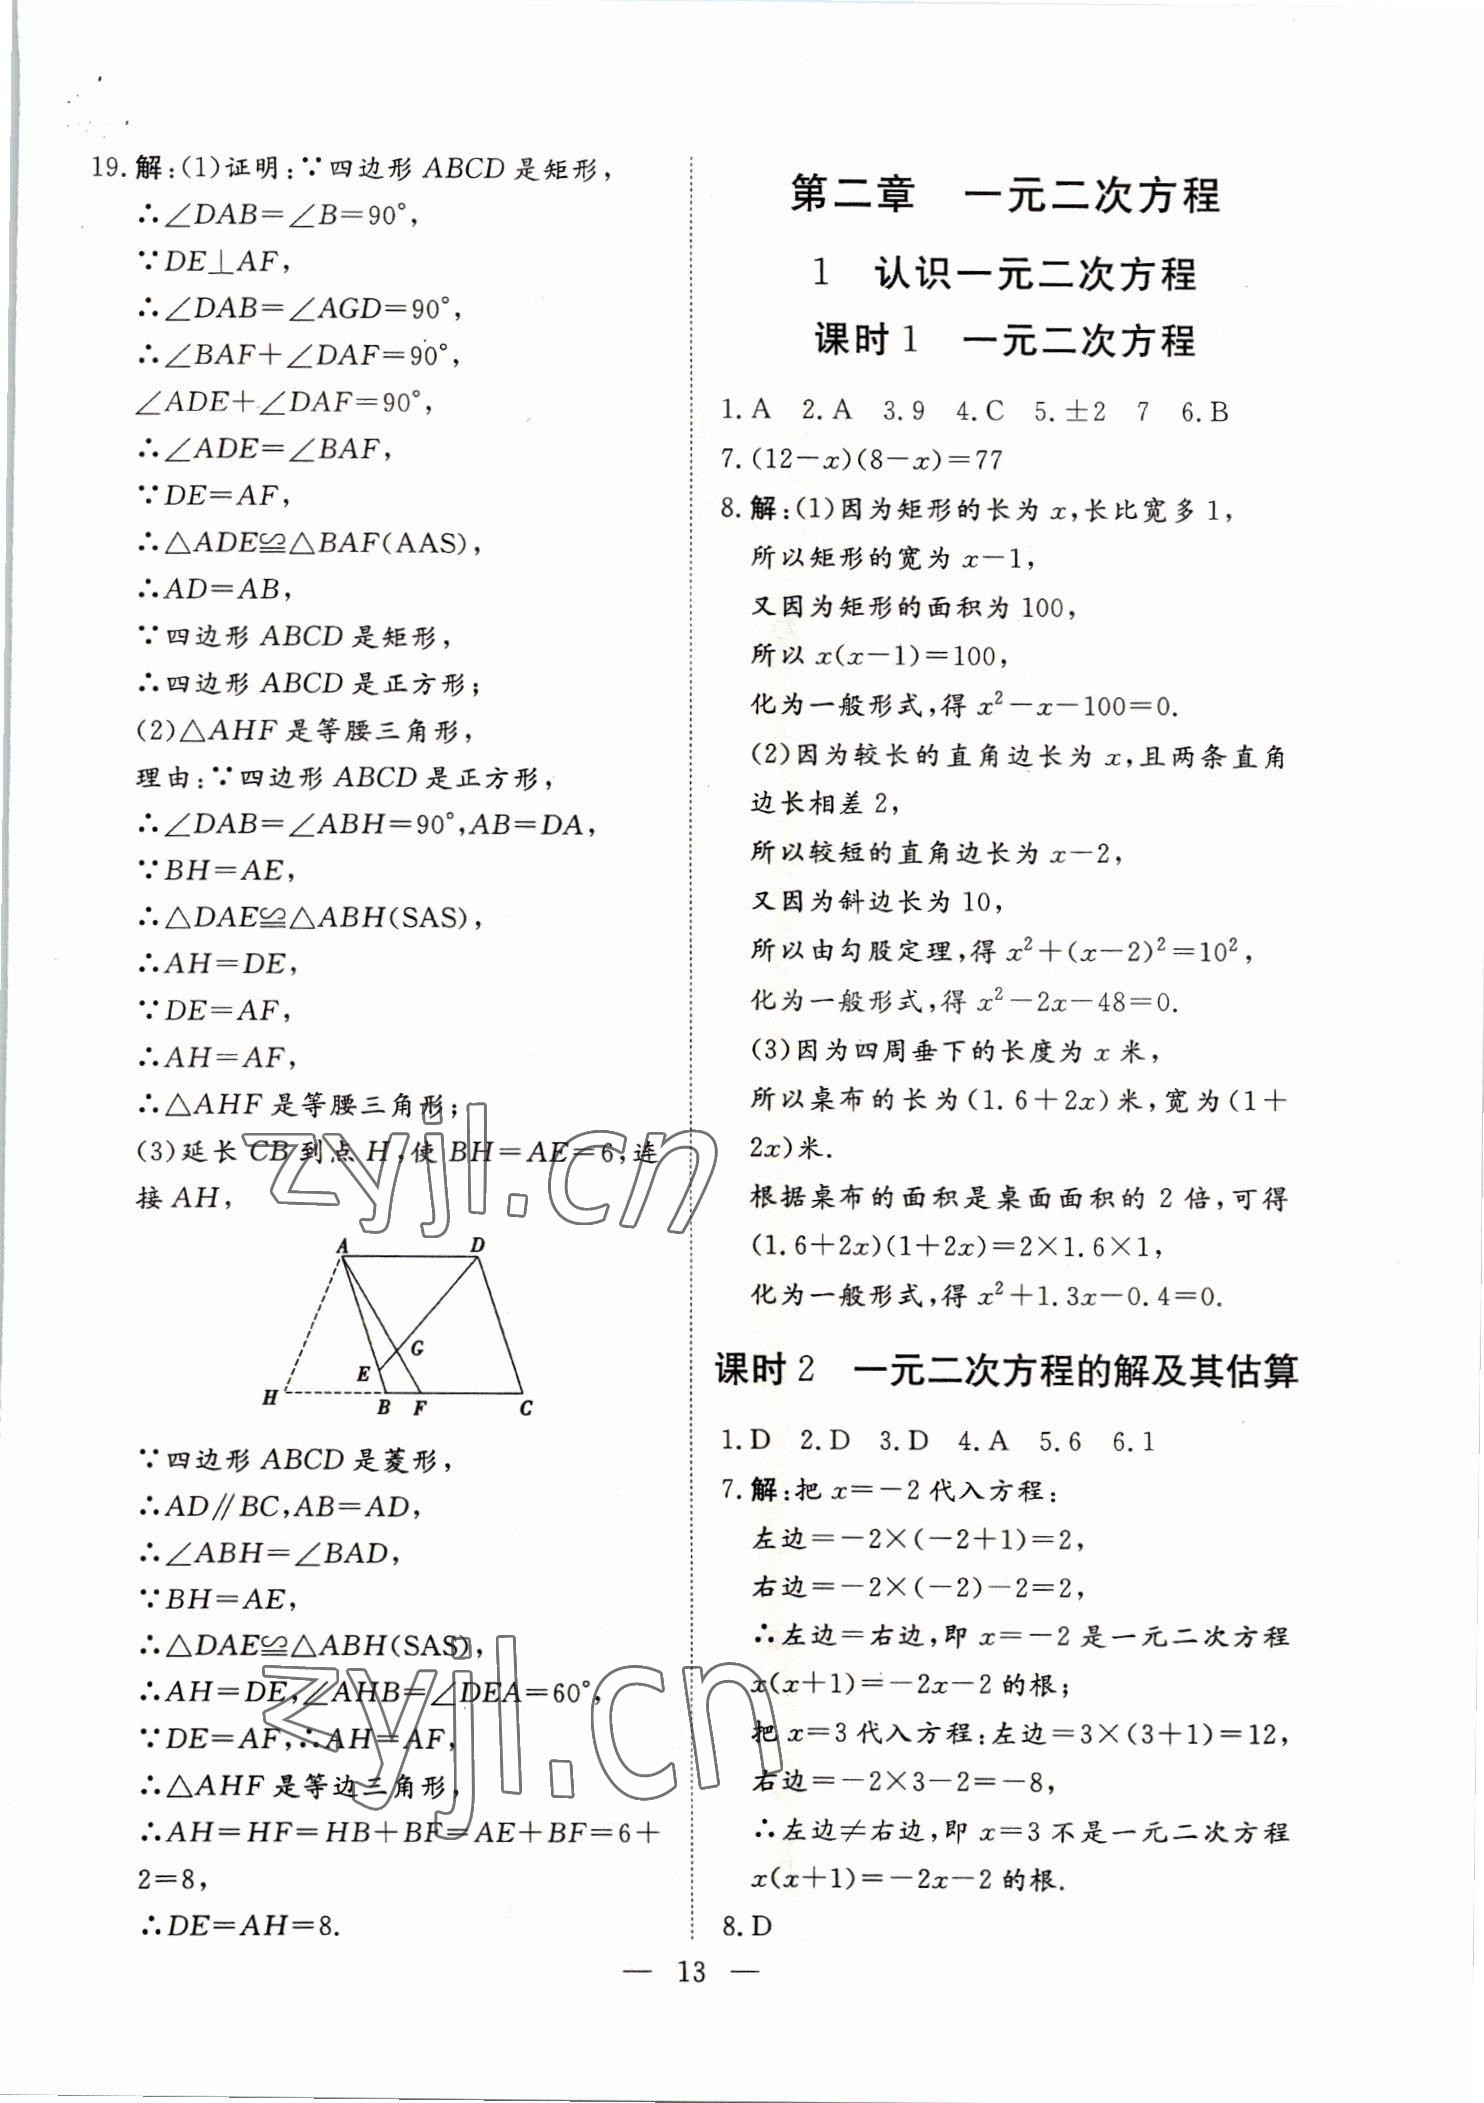 19.解:(1)证明:∵四边形ABCD是矩形,
∴∠DAB=∠B=90°,
∵DE⊥AF,
∴∠DAB=∠AGD=90°,
∴∠BAF+∠DAF=90°,
∠ADE+∠DAF=90°,
∴∠ADE=∠BAF,
∵DE=AF,
∴△ADE≌△BAF(AAS),
∴AD=AB,
∵四边形ABCD是矩形,
∴四边形ABCD是正方形;
(2)△AHF是等腰三角形,
理由:∵四边形ABCD是正方形,
∴∠DAB=∠ABH=90°,AB=DA,
∵BH=AE,
∴△DAE≌△ABH(SAS),
∴AH=DE,
∵DE=AF,
∴AH=AF,
∴△AHF是等腰三角形;
(3)延长CB到点H,使BH=AE=6,连
接AH,
A D
G
E
H B F C
∵四边形ABCD是菱形,
∴AD∥BC,AB=AD,
∴∠ABH=∠BAD,
∵BH=AE,
∴△DAE≌△ABH(SAS),
∴AH=DE,∠AHB=∠DEA=60°,
∵DE=AF,∴AH=AF,
∴△AHF是等边三角形,
∴AH=HF=HB+BF=AE+BF=6+
2=8,
∴DE=AH=8.
zyjl.cn
zyjl.cn
第二章 一元二次方程
1 认识一元二次方程
课时1 一元二次方程
1.A 2.A 3.9 4.C 5.±2 7 6.B
7.(12-x)(8-x)=77
8.解:(1)因为矩形的长为x,长比宽多1,
所以矩形的宽为x-1,
又因为矩形的面积为100,
所以x(x-1)=100,
化为一般形式,得x²-x-100=0.
(2)因为较长的直角边长为x,且两条直角
边长相差2,
所以较短的直角边长为x-2,
又因为斜边长为10,
所以由勾股定理,得x²+(x-2)²=10²,
化为一般形式,得x²-2x-48=0.
(3)因为四周垂下的长度为x米,
所以桌布的长为(1.6+2x)米,宽为(1+
2x)米.
根据桌布的面积是桌面面积的2倍,可得
(1.6+2x)(1+2x)=2×1.6×1,
化为一般形式,得x²+1.3x-0.4=0.
课时2 一元二次方程的解及其估算
1.D 2.D 3.D 4.A 5.6 6.1
7.解:把x=-2代入方程:
左边=-2×(-2+1)=2,
右边=-2×(-2)-2=2,
∴左边=右边,即x=-2是一元二次方程
x(x+1)=-2x-2的根;
把x=3代入方程:左边=3×(3+1)=12,
右边=-2×3-2=-8,
∴左边≠右边,即x=3不是一元二次方程
x(x+1)=-2x-2的根.
8.D
— 13 —